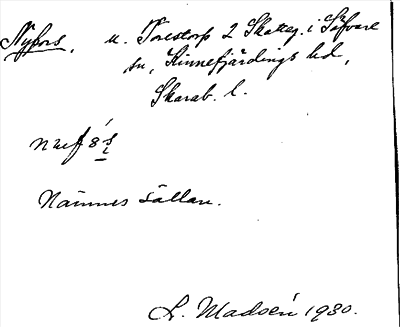 Nyfors, u. Torestorp 2 Skatteg. i Säfvare
sn, Kinnefjärdings hd,
Skarab. l.
Nämnes sällan.
L. Madsén 1930.